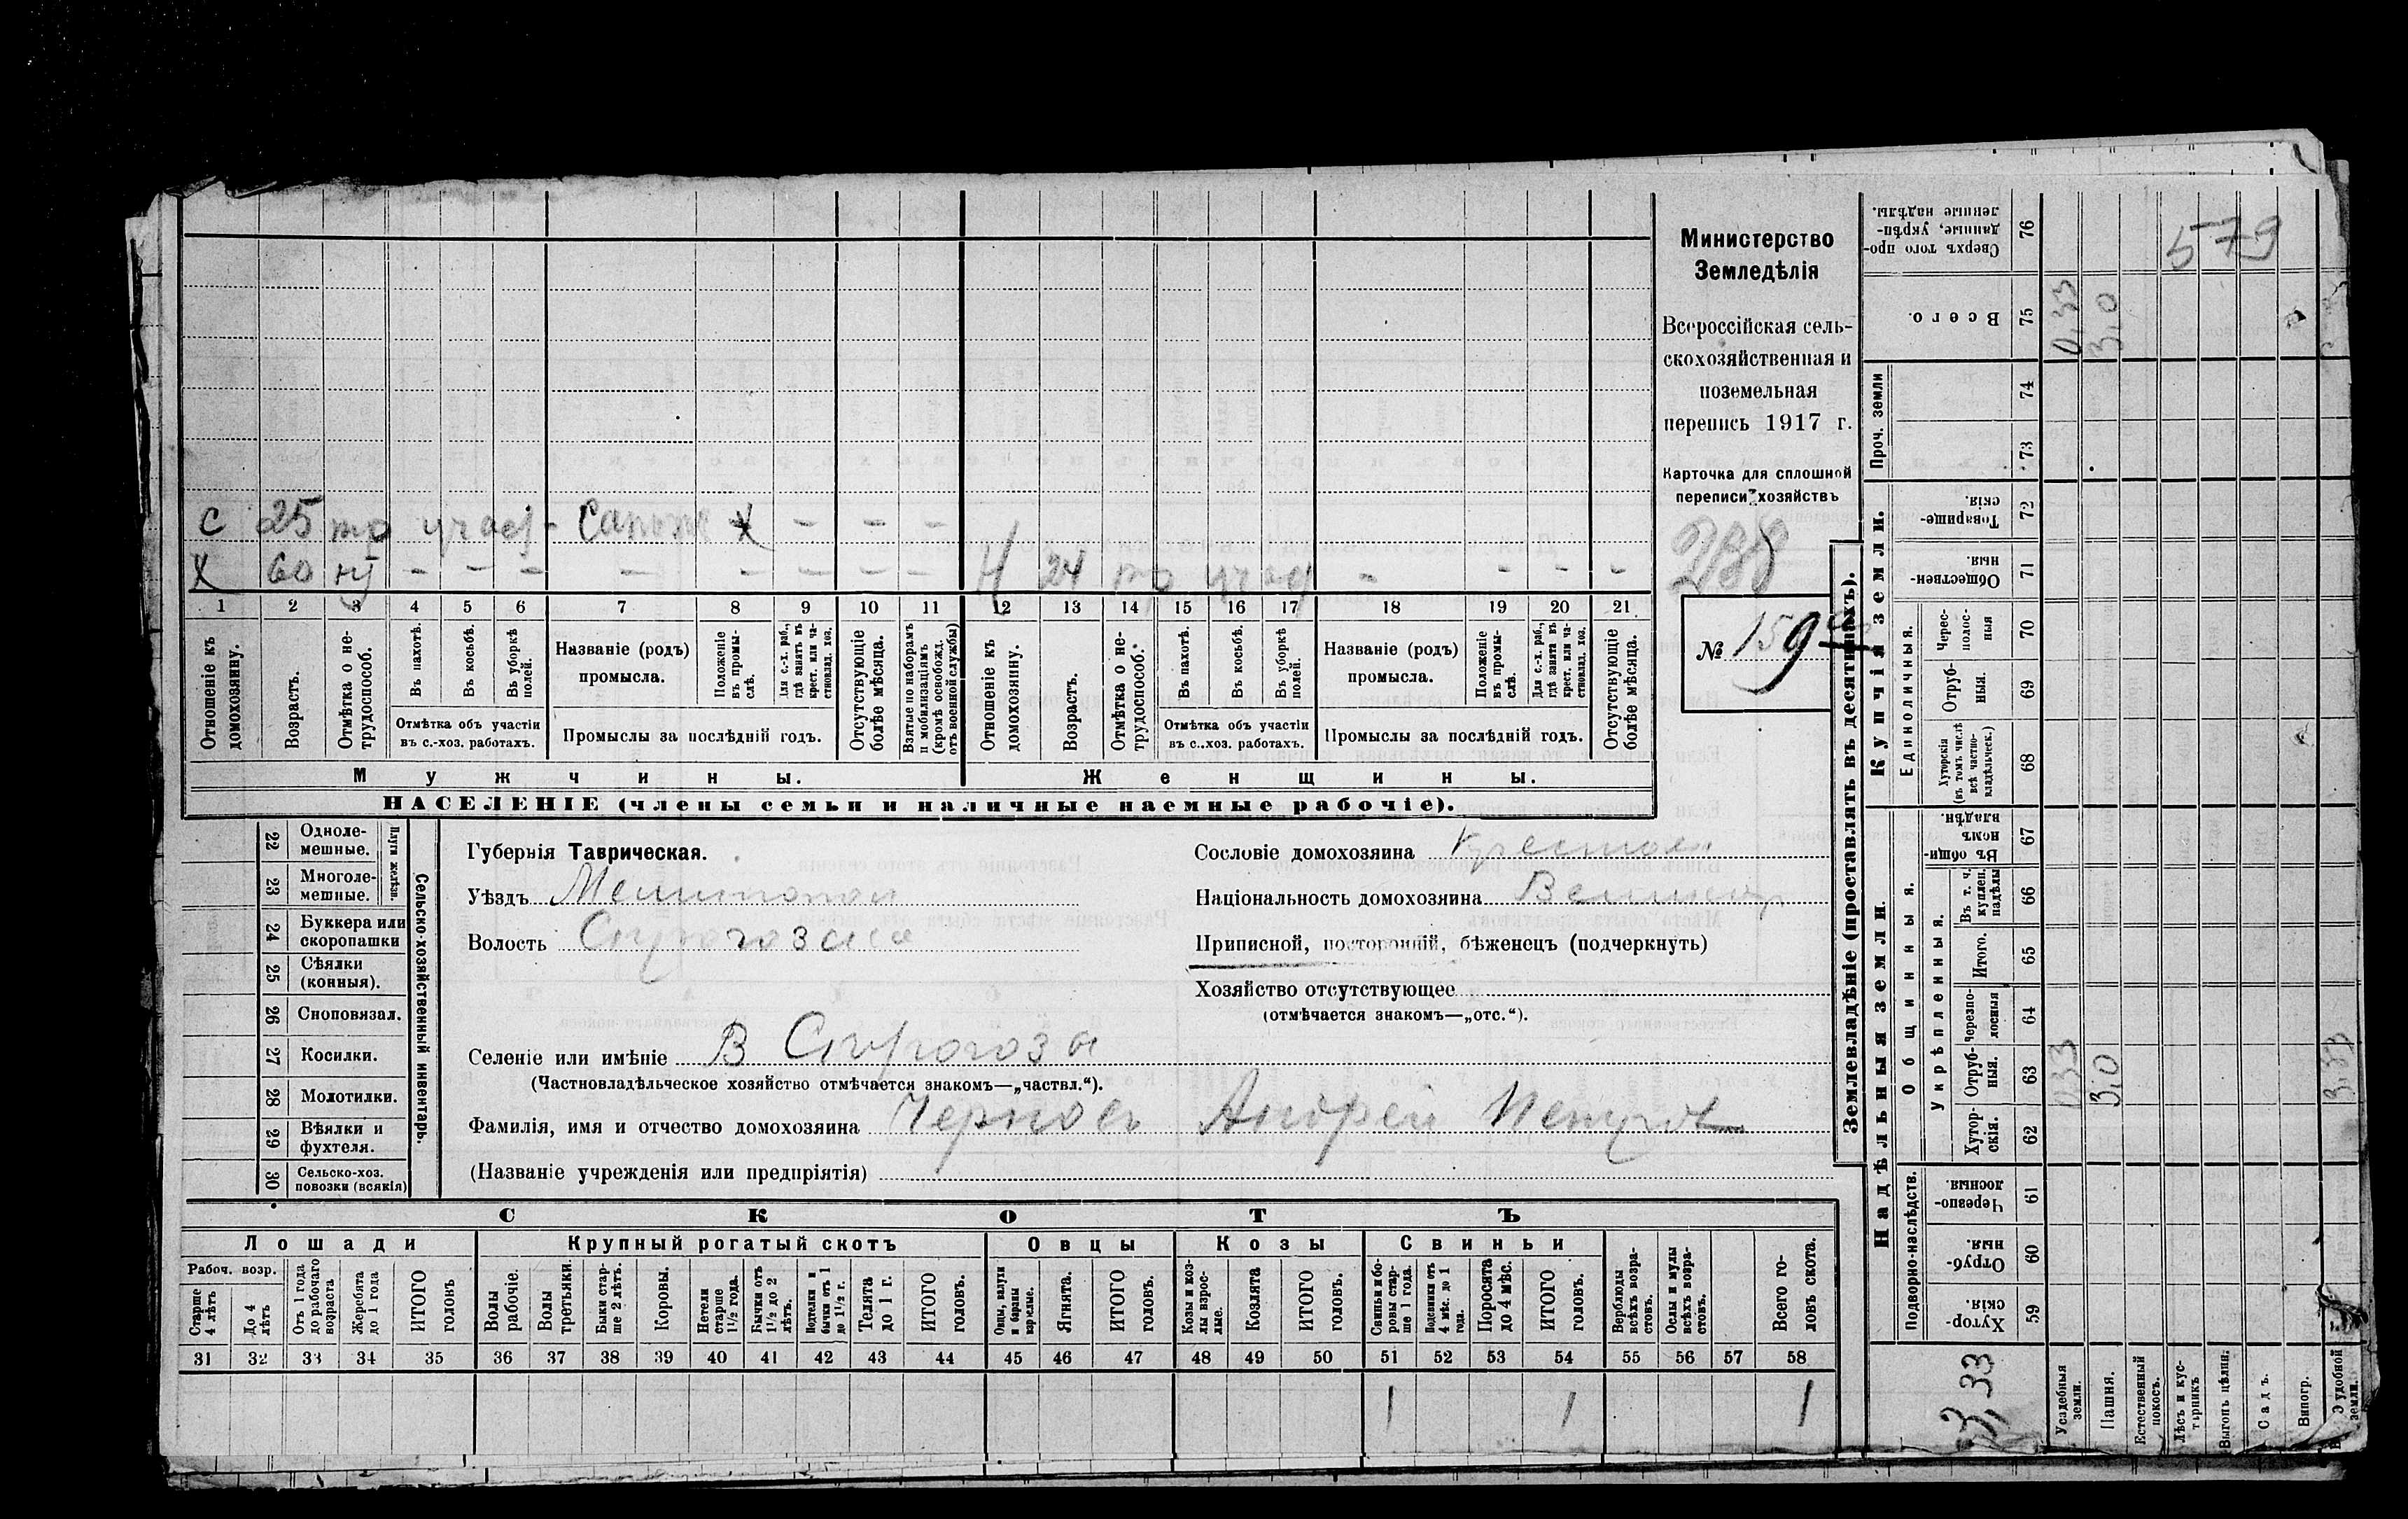 Министерство
Земледѣлія
Всероссійская сель-
скохозяйственная и
поземельная
перепись 1917 г.
Карточка для сплошной
переписи хозяйствъ
288
№ 159
С 25 тр участ - Сапожн х - - -
Х 60 нт - - - - - - - - Н 24 тр участ - - - -
1 2 3 4 5 6 7 8 9 10 11 12 13 14 15 16 17 18 19 20 21
Отношеніе къ домохозяину.
Возрастъ.
Отмѣтка о не-трудоспособ.
Въ пахотѣ.
Въ косьбѣ.
Въ уборкѣ полей.
Отмѣтка объ участіи въ с.-хоз. работахъ.
Названіе (родъ) промысла.
Положеніе въ промы-слѣ.
Для с.-х. раб., гдѣ занятъ въ крест. или ча-стновлад. хоз.
Промыслы за послѣдній годъ.
Отсутствующіе болѣе мѣсяца.
Взятые по наборамъ и мобилизаціямъ (кромѣ освобожд. отъ военной службы)
Отношеніе къ домохозяину.
Возрастъ.
Отмѣтка о не-трудоспособ.
Въ пахотѣ.
Въ косьбѣ.
Въ уборкѣ полей.
Отмѣтка объ участіи въ с..хоз. работахъ.
Названіе (родъ) промысла.
Положеніе въ промы-слѣ.
Для с.-х. раб., гдѣ занята въ крест. или ча-стновлад. хоз.
Промыслы за послѣдній годъ.
Отсутствующіе болѣе мѣсяца.
Мужчины. Женщины.
НАСЕЛЕНІЕ (члены семьи и наличные наемные рабочіе).
22 Одноле-мешные.
23 Многоле-мешные.
Плуги желѣзн.
24 Буккера или скоропашки
25 Сѣялки (конныя).
26 Сноповязал.
27 Косилки.
28 Молотилки.
29 Вѣялки и фухтеля.
30 Сельско-хоз. повозки (всякія)
Сельско-хозяйственный инвентарь.
Губернія Таврическая.
Уѣздъ Мелитопол
Волость Сирогозская
Селеніе или имѣніе В Сирогозы
(Частновладѣльческое хозяйство отмѣчается знакомъ—„частвл.“).
Фамилія, имя и отчество домохозяина Чернов Андрей Петров
(Названіе учрежденія или предпріятія)
Сословіе домохозяина Крестьян
Національность домохозяина Великор
Приписной, посторонній, бѣженецъ (подчеркнуть)
Хозяйство отсутствующее
(отмѣчается знакомъ—„отс.“).
СКОТЪ
Лошади Крупный рогатый скотъ Овцы Козы Свиньи
Рабоч. возр.
Старше 4 лѣтъ
До 4 лѣтъ
Отъ 1 года до рабочаго возраста
Жеребята до 1 года
ИТОГО головъ
Волы рабочіе.
Волы третьяки.
Быки стар-ше 2 лѣтъ.
Коровы.
Нетели старше 1½ года.
Бычки отъ 1½ до 2 лѣтъ.
Подтелки и бычки отъ 1 до 1½ г.
Телята до 1 г.
ИТОГО головъ.
Овцы, валухи и бараны взрослые.
Ягнята.
ИТОГО головъ.
Козы и коз-лы взрос-лые.
Козлята
ИТОГО головъ.
Свиньи и бо-ровы стар-ше 1 года.
Подсвинки отъ 4 мѣс. до 1 года.
Поросята до 4 мѣс.
ИТОГО головъ.
Верблюды всѣхъ возра-стовъ.
Ослы и мулы всѣхъ возра-стовъ.
Всего го-ловъ скота.
31 32 33 34 35 36 37 38 39 40 41 42 43 44 45 46 47 48 49 50 51 52 53 54 55 56 57 58
1 1 1
Землевладѣніе (проставлять въ десятинахъ).
Надѣльныя земли. Купчія земли. Проч. земли
Подворно-наслѣдств. Общинныя. Укрѣпленныя. Единоличныя.
Хутор-скія. 59
Отруб-ныя. 60
Черезпо-лосныя. 61
Хутор-скія. 62
Отруб-ныя. 63
Черезпо-лосныя 64
Итого. 65
Въ т. ч. куплен. надѣлы 66
Въ общин-номъ владѣн. 67
Хуторскія (въ томъ числѣ всѣ частно-владѣльческ.) 68
Отруб-ныя. 69
Черес-полос-ныя 70
Обществен-ныя. 71
Товарище-скія. 72
73
74
Всего. 75
Сверхъ того про-данные, укрѣп-ленные надѣлы. 76
3,33
Усадебныя земли. 0.33 0,33
Пашня. 3.0 3,0
Естественный покосъ.
Лѣсъ и кус-тарникъ
Выгонъ цѣлин.
Садъ.
Виногр.
удобной земли. 3.33
579